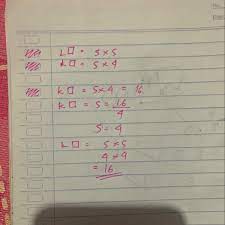 L□ = s x s
K□ = s x 4
K□ = s x 4 = 16
K□ = s = 16/4
s = 4
L□ = s x s
4 x 4
= 16